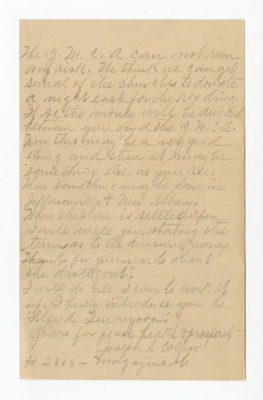 The Y. M. C. A can not run
any risk. The think we can get
several of the churches to donate
a night each for the reading.
If so, the money will be divided
between you and the Y.M.C.A.
Now, this may be a very good
thing and then it may be
something else, as you see.
Then something may be done in
Jeffersonville & New Albany.
When the plan is settled upon,
I will write you stating the
terms as to the division of money.
Thanks for your words about
the dialogue.
I will do all I can to work it
up. I herely introduce you to
Alfred Tennyson's
Yours for peace, health & prosperity—
Joseph S. Cotter
# 2306 — Magazine St